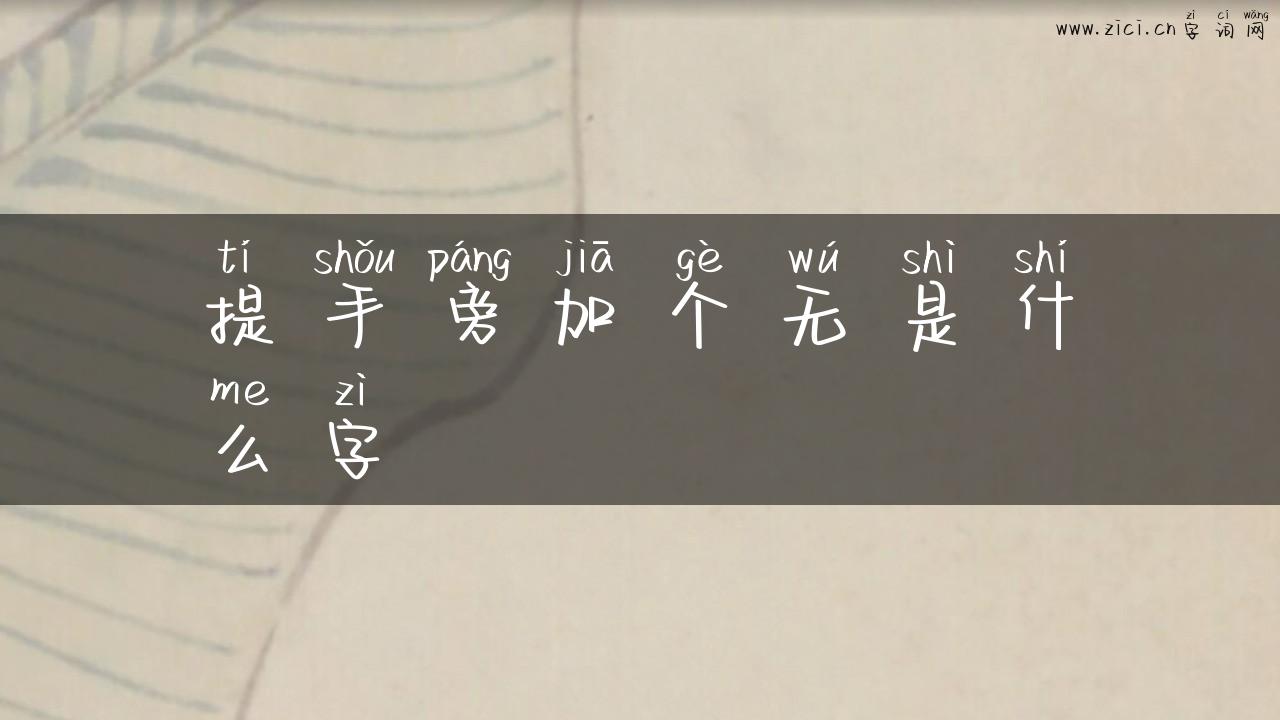 zì cí wǎng
www.zici.cn 字 词 网
tí shǒu páng jiā gè wú shì shí
提 手 旁 加 个 无 是 什
me zì
么 字